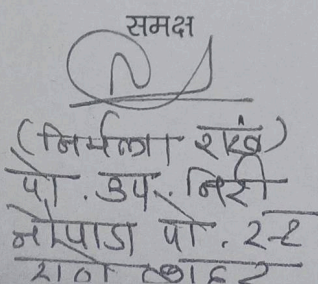 समक्ष
(निर्मला शेख)
पो. उप. निरी
नौपाडा पो. स्टे
ठाणे शहर